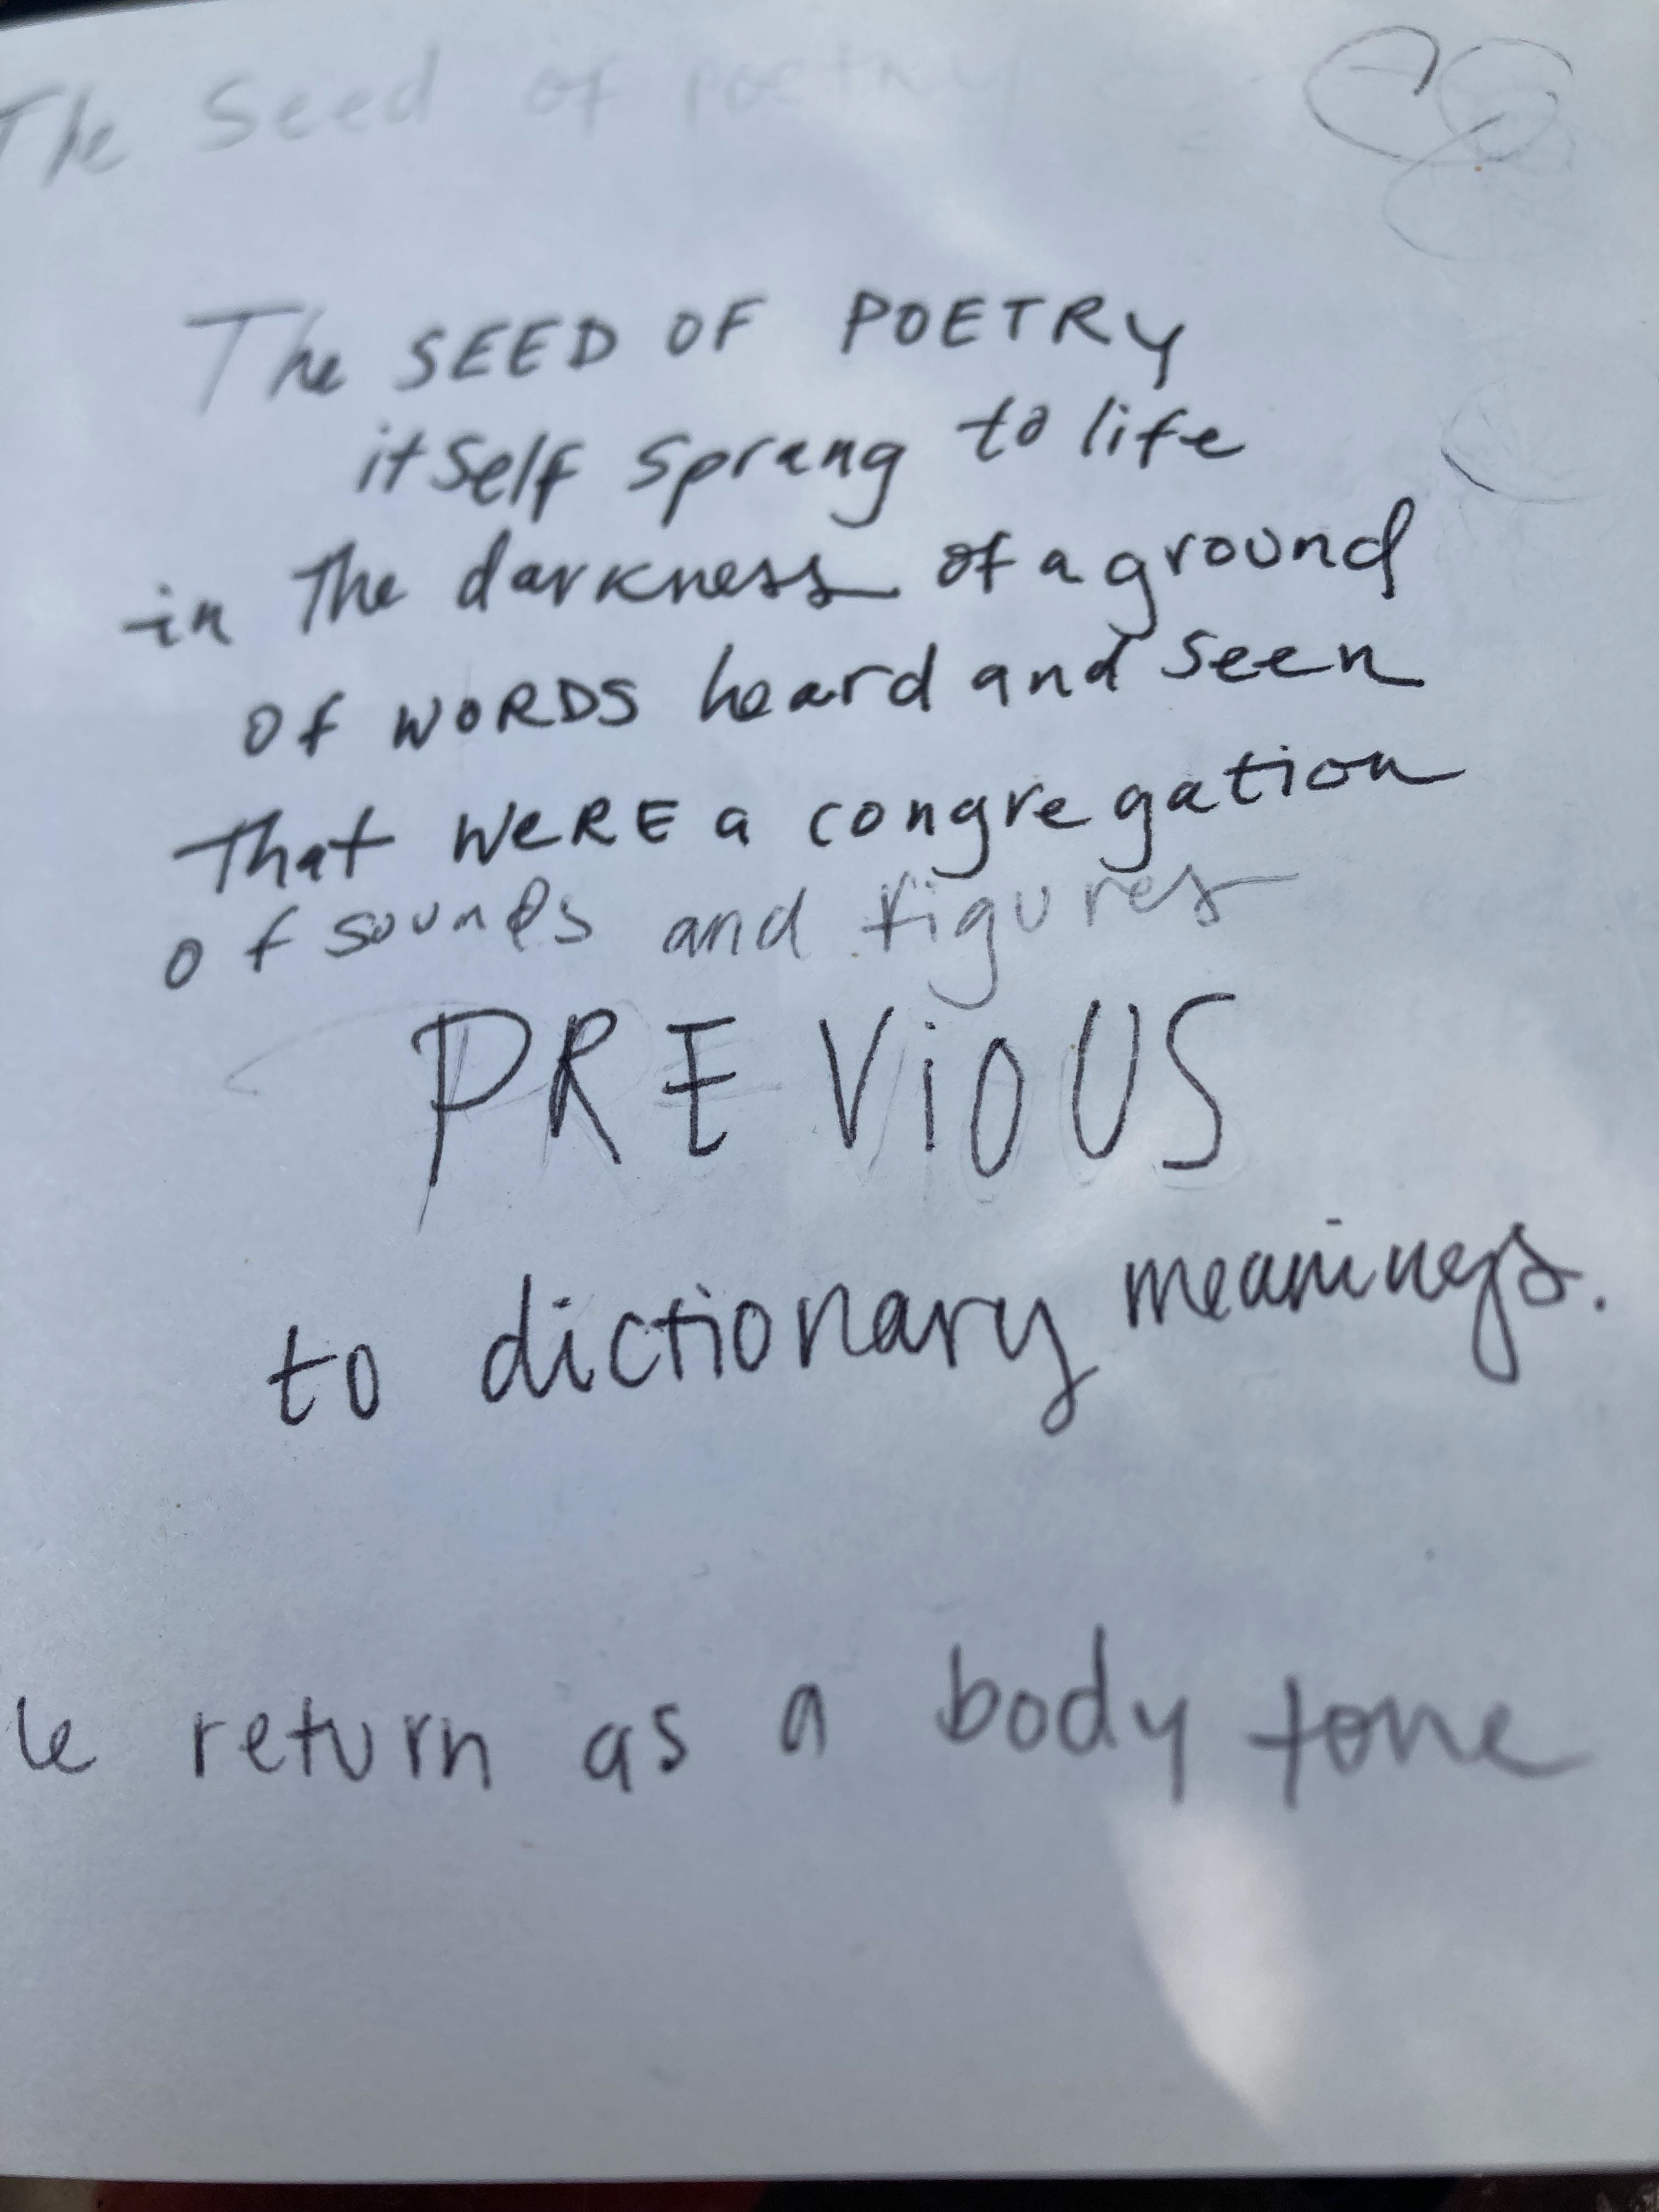 The Seed of poetry
The SEED OF POETRY
itself sprang to life
in the darkness of a ground
of WORDS heard and seen
that WERE a congregation
of sounds and figures
PREViOUS
to dictionary meanings.
return as a body tone